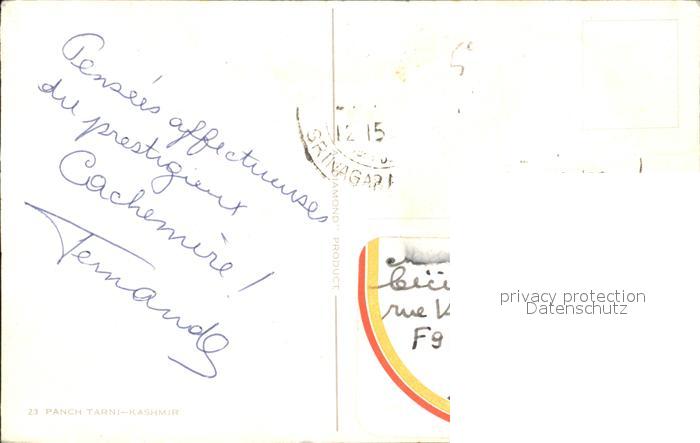 Pensées affectueuses
du prestigieux
Cachemire !
Fernande
23 PANCH TARNI—KASHMIR
AMOND" PRODUCT
12 15
SRINAGAR
rue
F9
privacy protection
Datenschutz